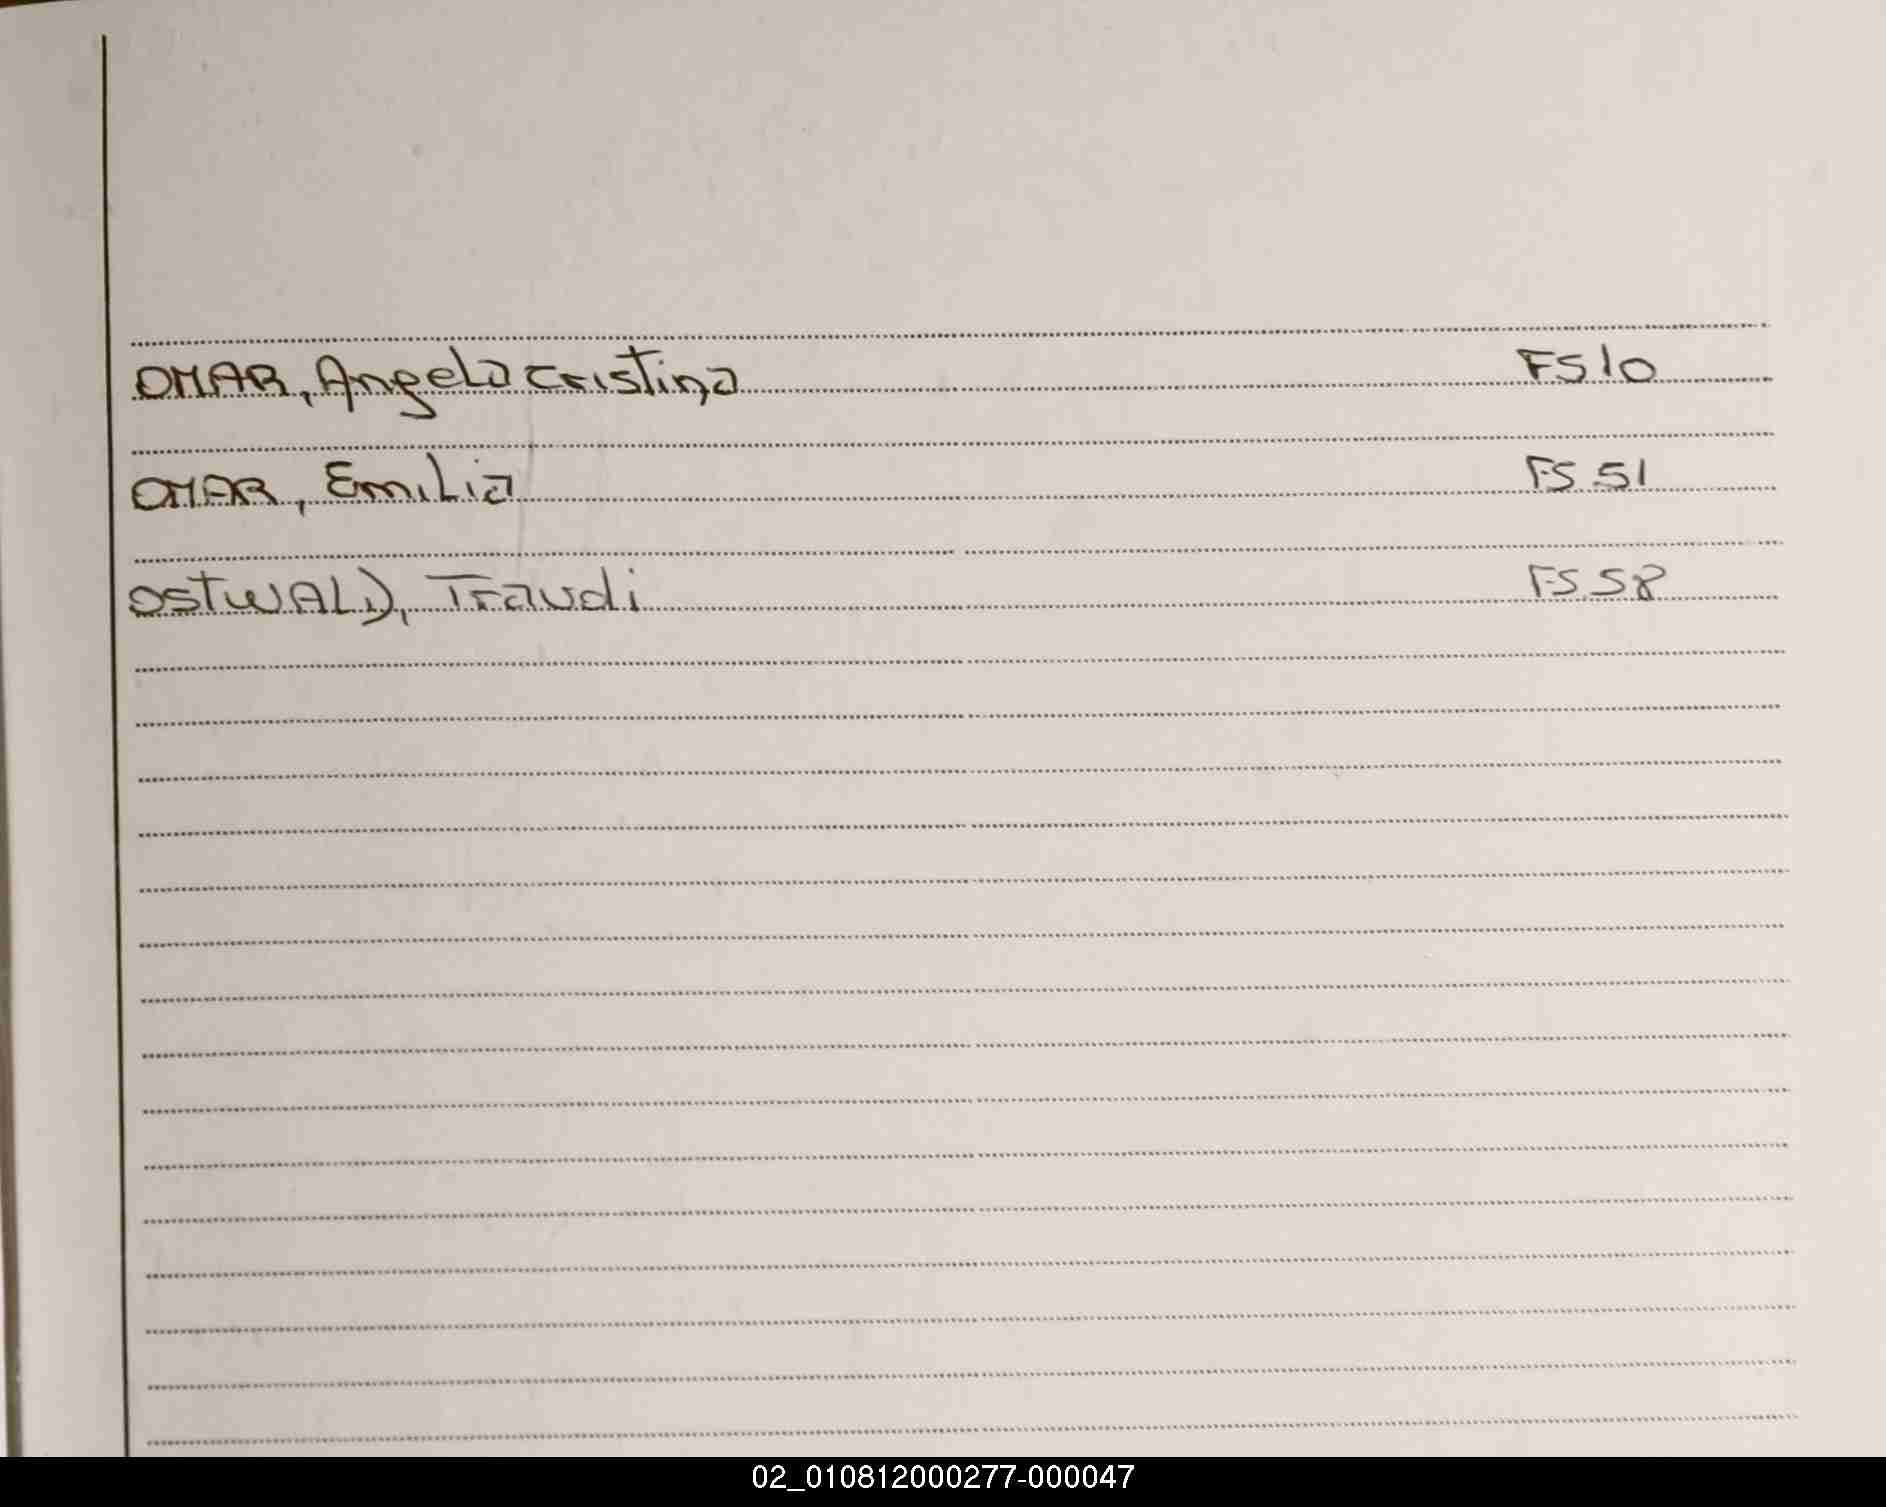 OMAR, Angela Cristina FS 10
OMAR, Emilia FS 51
OSTWALD, Traudi FS 58
02_010812000277-000047